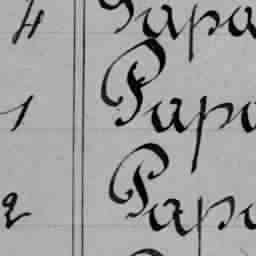 4 Papa
1 Papa
2 Papa